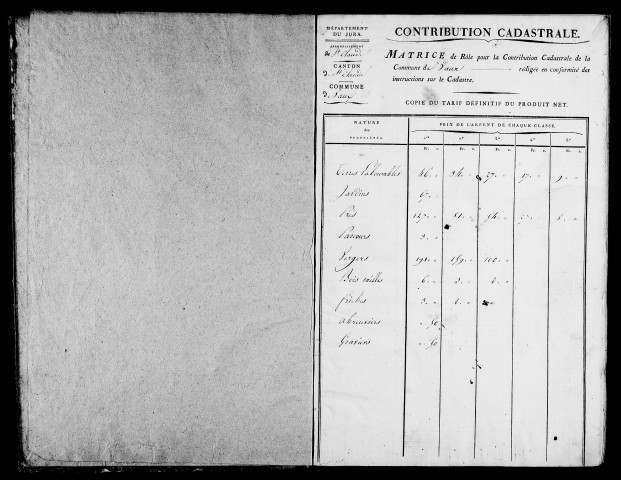 DÉPARTEMENT
DU JURA.
ARRONDISSEMENT
de St Claude
CANTON
de St Claude
COMMUNE
de Vaux
CONTRIBUTION CADASTRALE.
MATRICE de Rôle pour la Contribution Cadastrale de la
Commune de Vaux rédigée en conformité des
instructions sur le Cadastre.
COPIE DU TARIF DÉFINITIF DU PRODUIT NET.
NATURE
des
PROPRIÉTÉS.
PRIX DE L'ARPENT DE CHAQUE CLASSE
Fr. c. Fr. c. Fr. c. Fr. c. Fr. c.
Terres Labourables 46 34 27 17 9
Jardins
Prés 127 81 54
Parcours 3
Vergers 159 100
Bois taillis 6 3
friches 3
abreuvoirs 50
Graviers 50